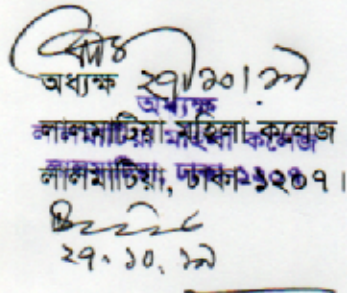 অধ্যক্ষ ২৭/১০/১৯
অধ্যক্ষ
লালমাটিয়া মহিলা কলেজ
লালমাটিয়া মহিলা কলেজ
লালমাটিয়া, ঢাকা-১২০৭।
লালমাটিয়া, ঢাকা-১২০৭
২৭.১০.১৯